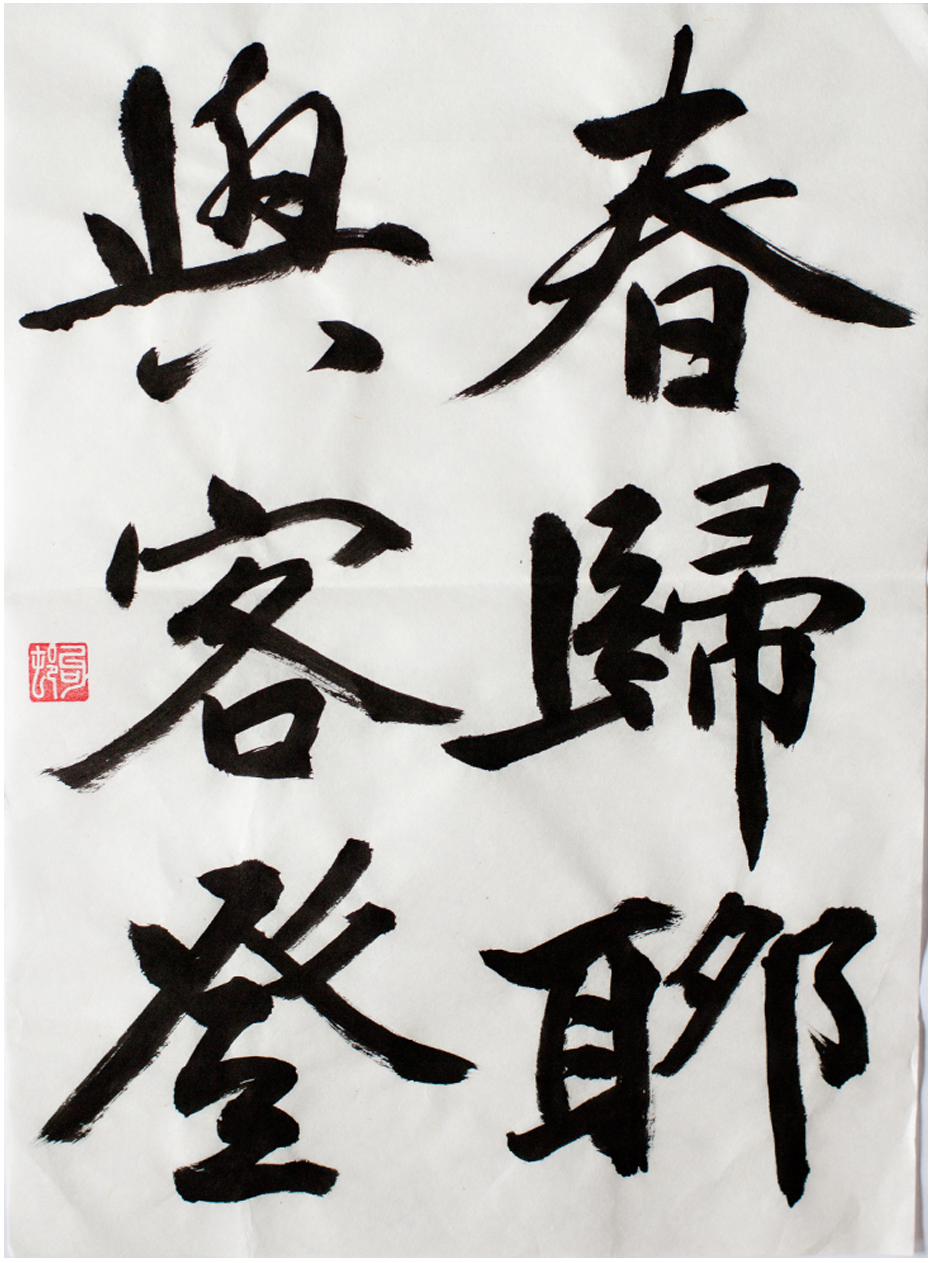 春歸聊
與客登